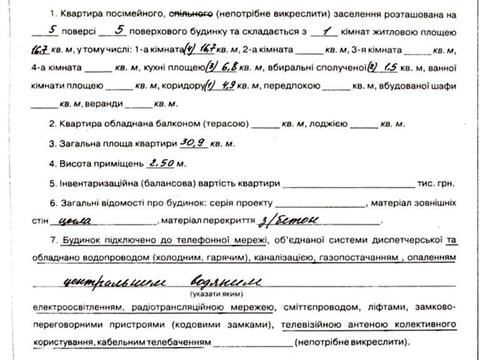 1. Квартира посімейного, спільного (непотрібне викреслити) заселення розташована на
5 поверсі 5 поверхового будинку та складається з 1 кімнат житловою площею
16,7 кв. м, у тому числі: 1-а кімната (4) 16,7 кв. м, 2-а кімната ____ кв. м, 3-я кімната ____ кв. м,
4-а кімната ____ кв. м, кухні площею (3) 6,8 кв. м, вбиральні сполученої (2) 1.5 кв. м, ванної
кімнати площею ____ кв. м, коридору (1) 4,9 кв. м, передпокою ____ кв. м, вбудованої шафи
____ кв. м, веранди ____ кв. м.
2. Квартира обладнана балконом (терасою) ____ кв. м, лоджією ____ кв. м.
3. Загальна площа квартири 30,9 кв. м.
4. Висота приміщень 2.50 м.
5. Інвентаризаційна (балансова) вартість квартири ____ тис. грн.
6. Загальні відомості про будинок: серія проекту ____, матеріал зовнішніх
стін цегла, матеріал перекриття з/бетон.
7. Будинок підключено до телефонної мережі, об'єднаної системи диспетчерської та
обладнано водопроводом (холодним, гарячим), каналізацією, газопостачанням, опаленням
центральним водяним
(указати яким)
електроосвітленням, радіотрансляційною мережею, сміттєпроводом, ліфтами, замково-
переговорними пристроями (кодовими замками), телевізійною антеною колективного
користування, кабельним телебаченням ____ (непотрібне викреслити).